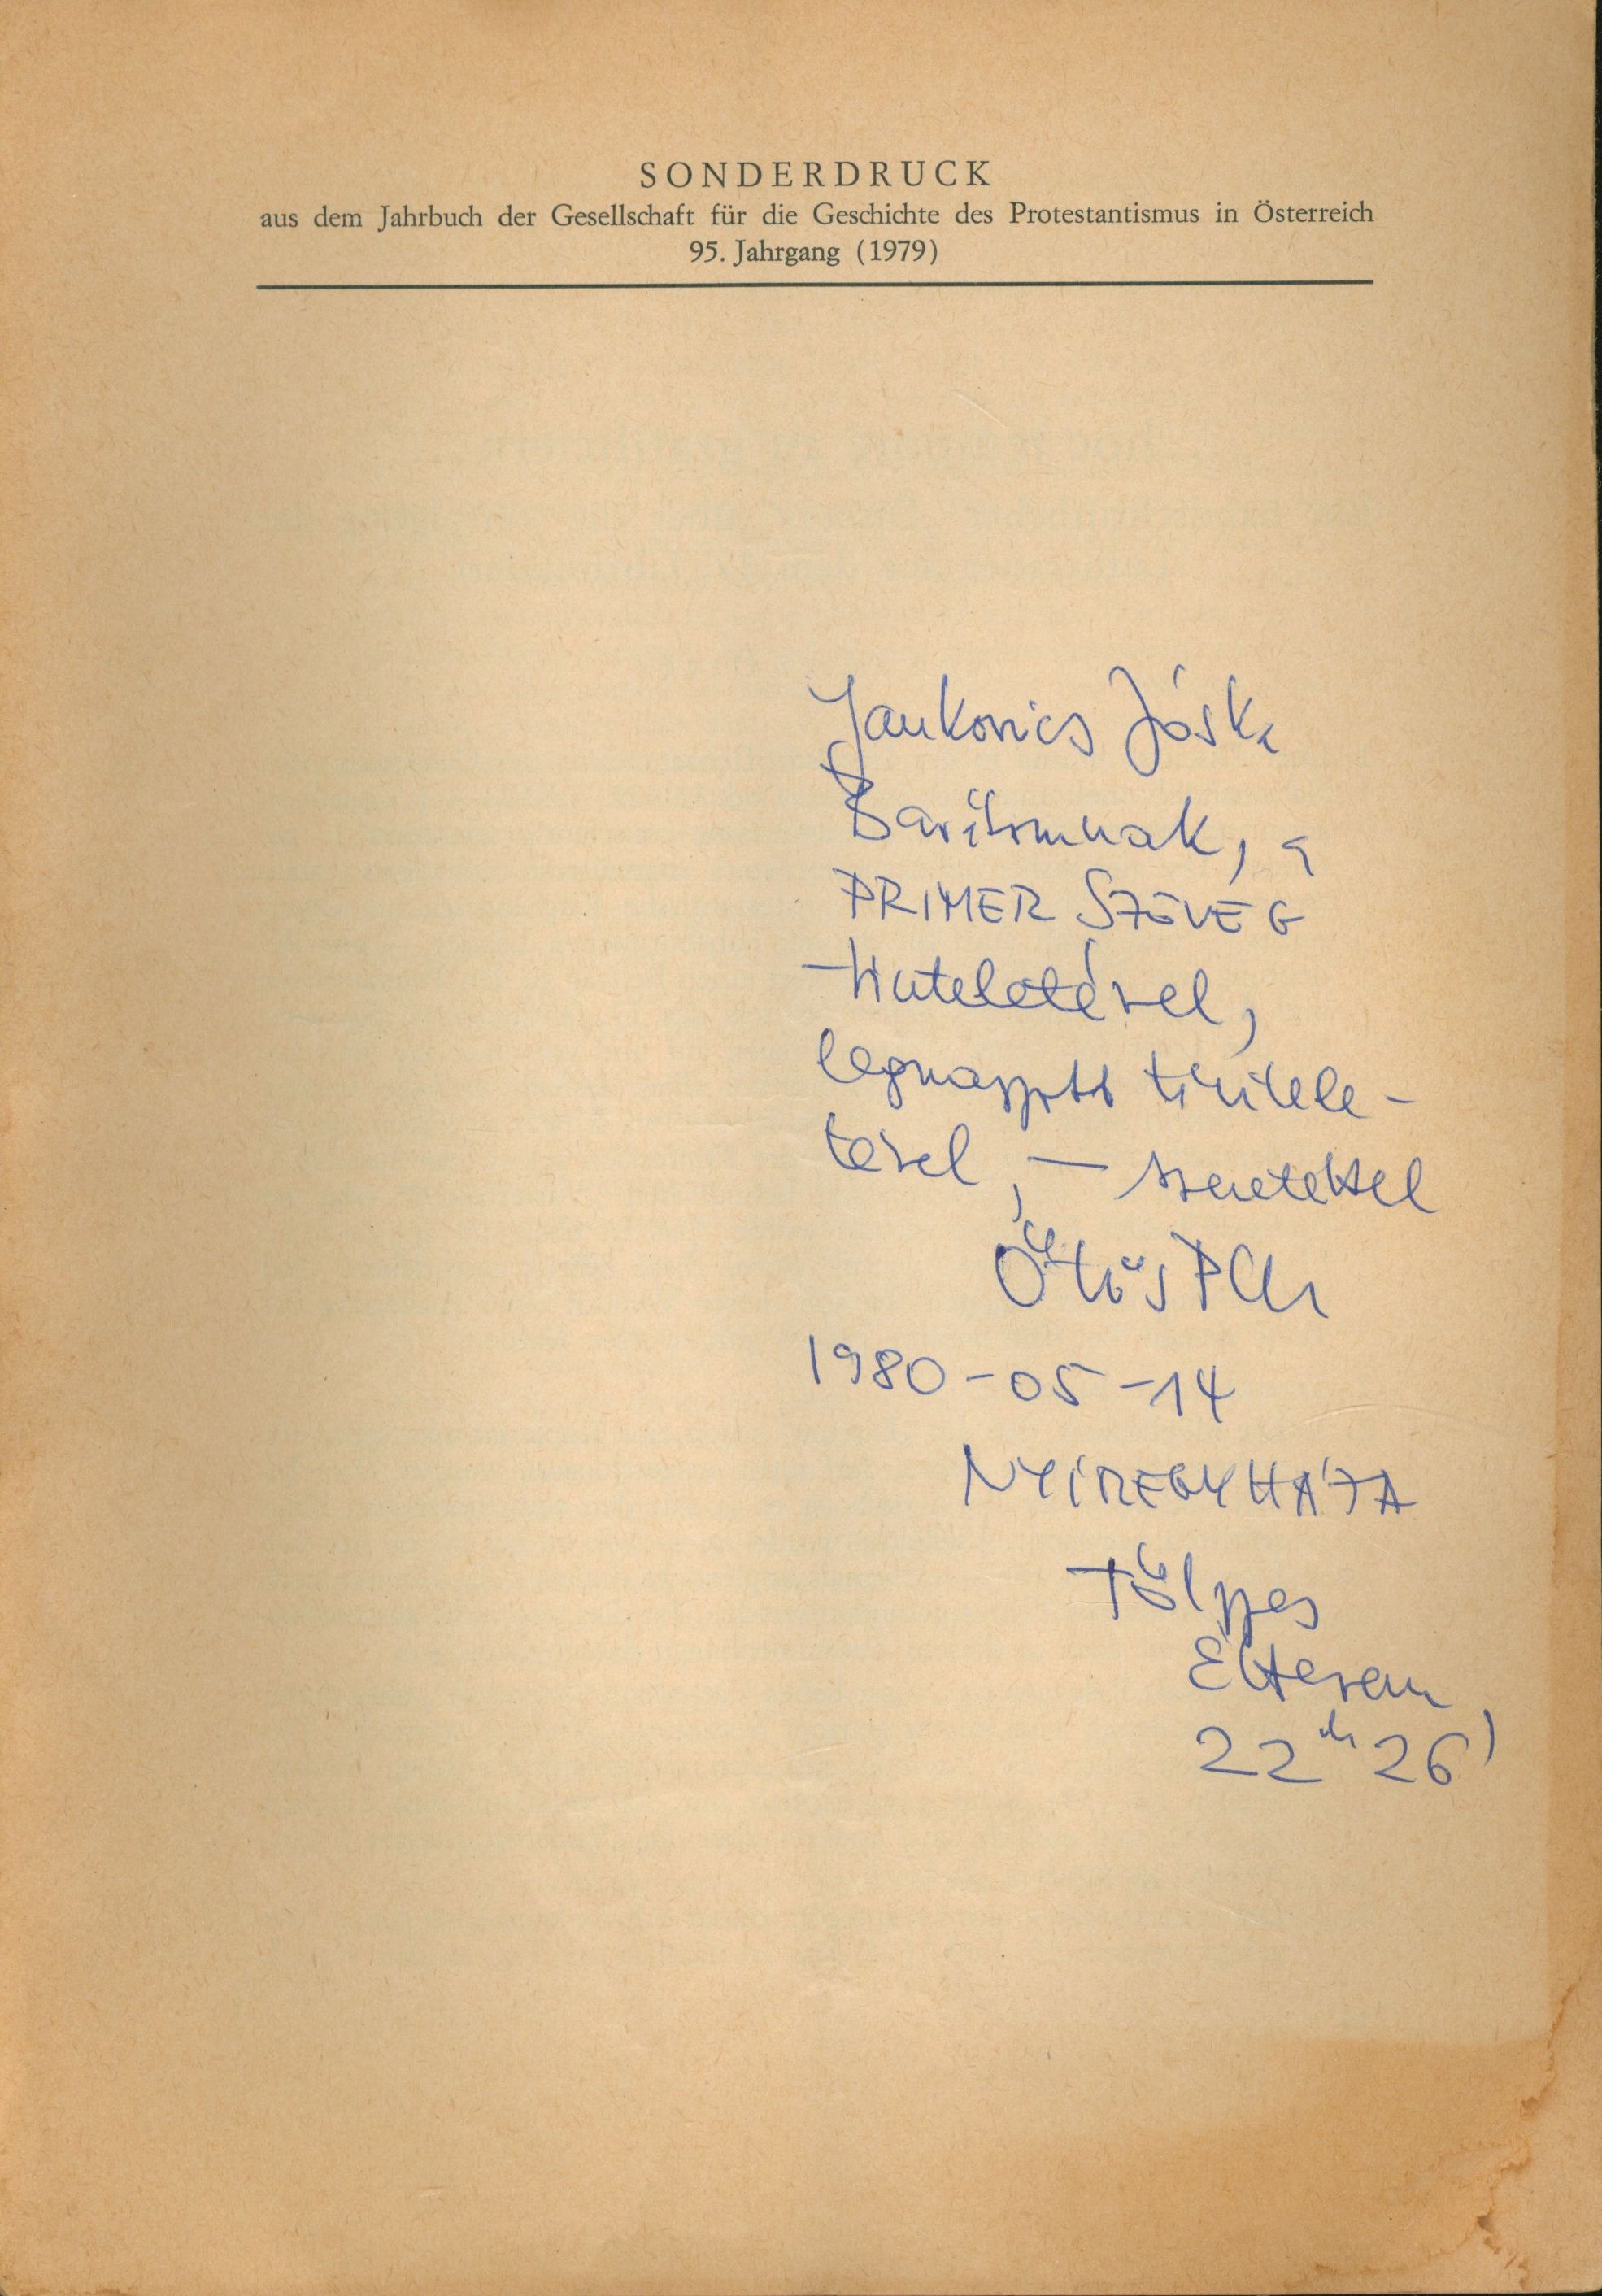 SONDERDRUCK
aus dem Jahrbuch der Gesellschaft für die Geschichte des Protestantismus in Österreich
95. Jahrgang (1979)
Jankovics Jóska
Barátomnak, a
PRIMER SZÖVEG
tisztele-
tével, — szeretettel
Ötvös Péter
1980-05-14
NYÍREGYHÁZA
22 h 26'